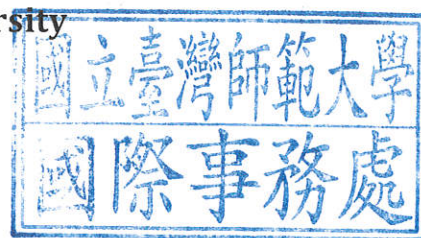 rsity
國立臺灣師範大學
國際事務處